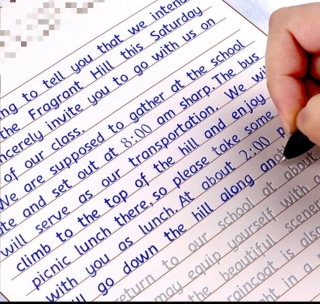 ng to tell you that we intend
the Fragrant Hill this Saturday
ncerely invite you to go with us on
of our class.
We are supposed to gather at the school
te and set out at 8:00 am sharp. The bus
will serve as our transportation. We wi
climb to the top of the hill and enjoy
picnic lunch there, so please take some
with you as lunch. At about 2:00 P
ll go down the hill along ano
return to our school at about
may equip yourself with
the beautiful scener
raincoat is also
ht in a